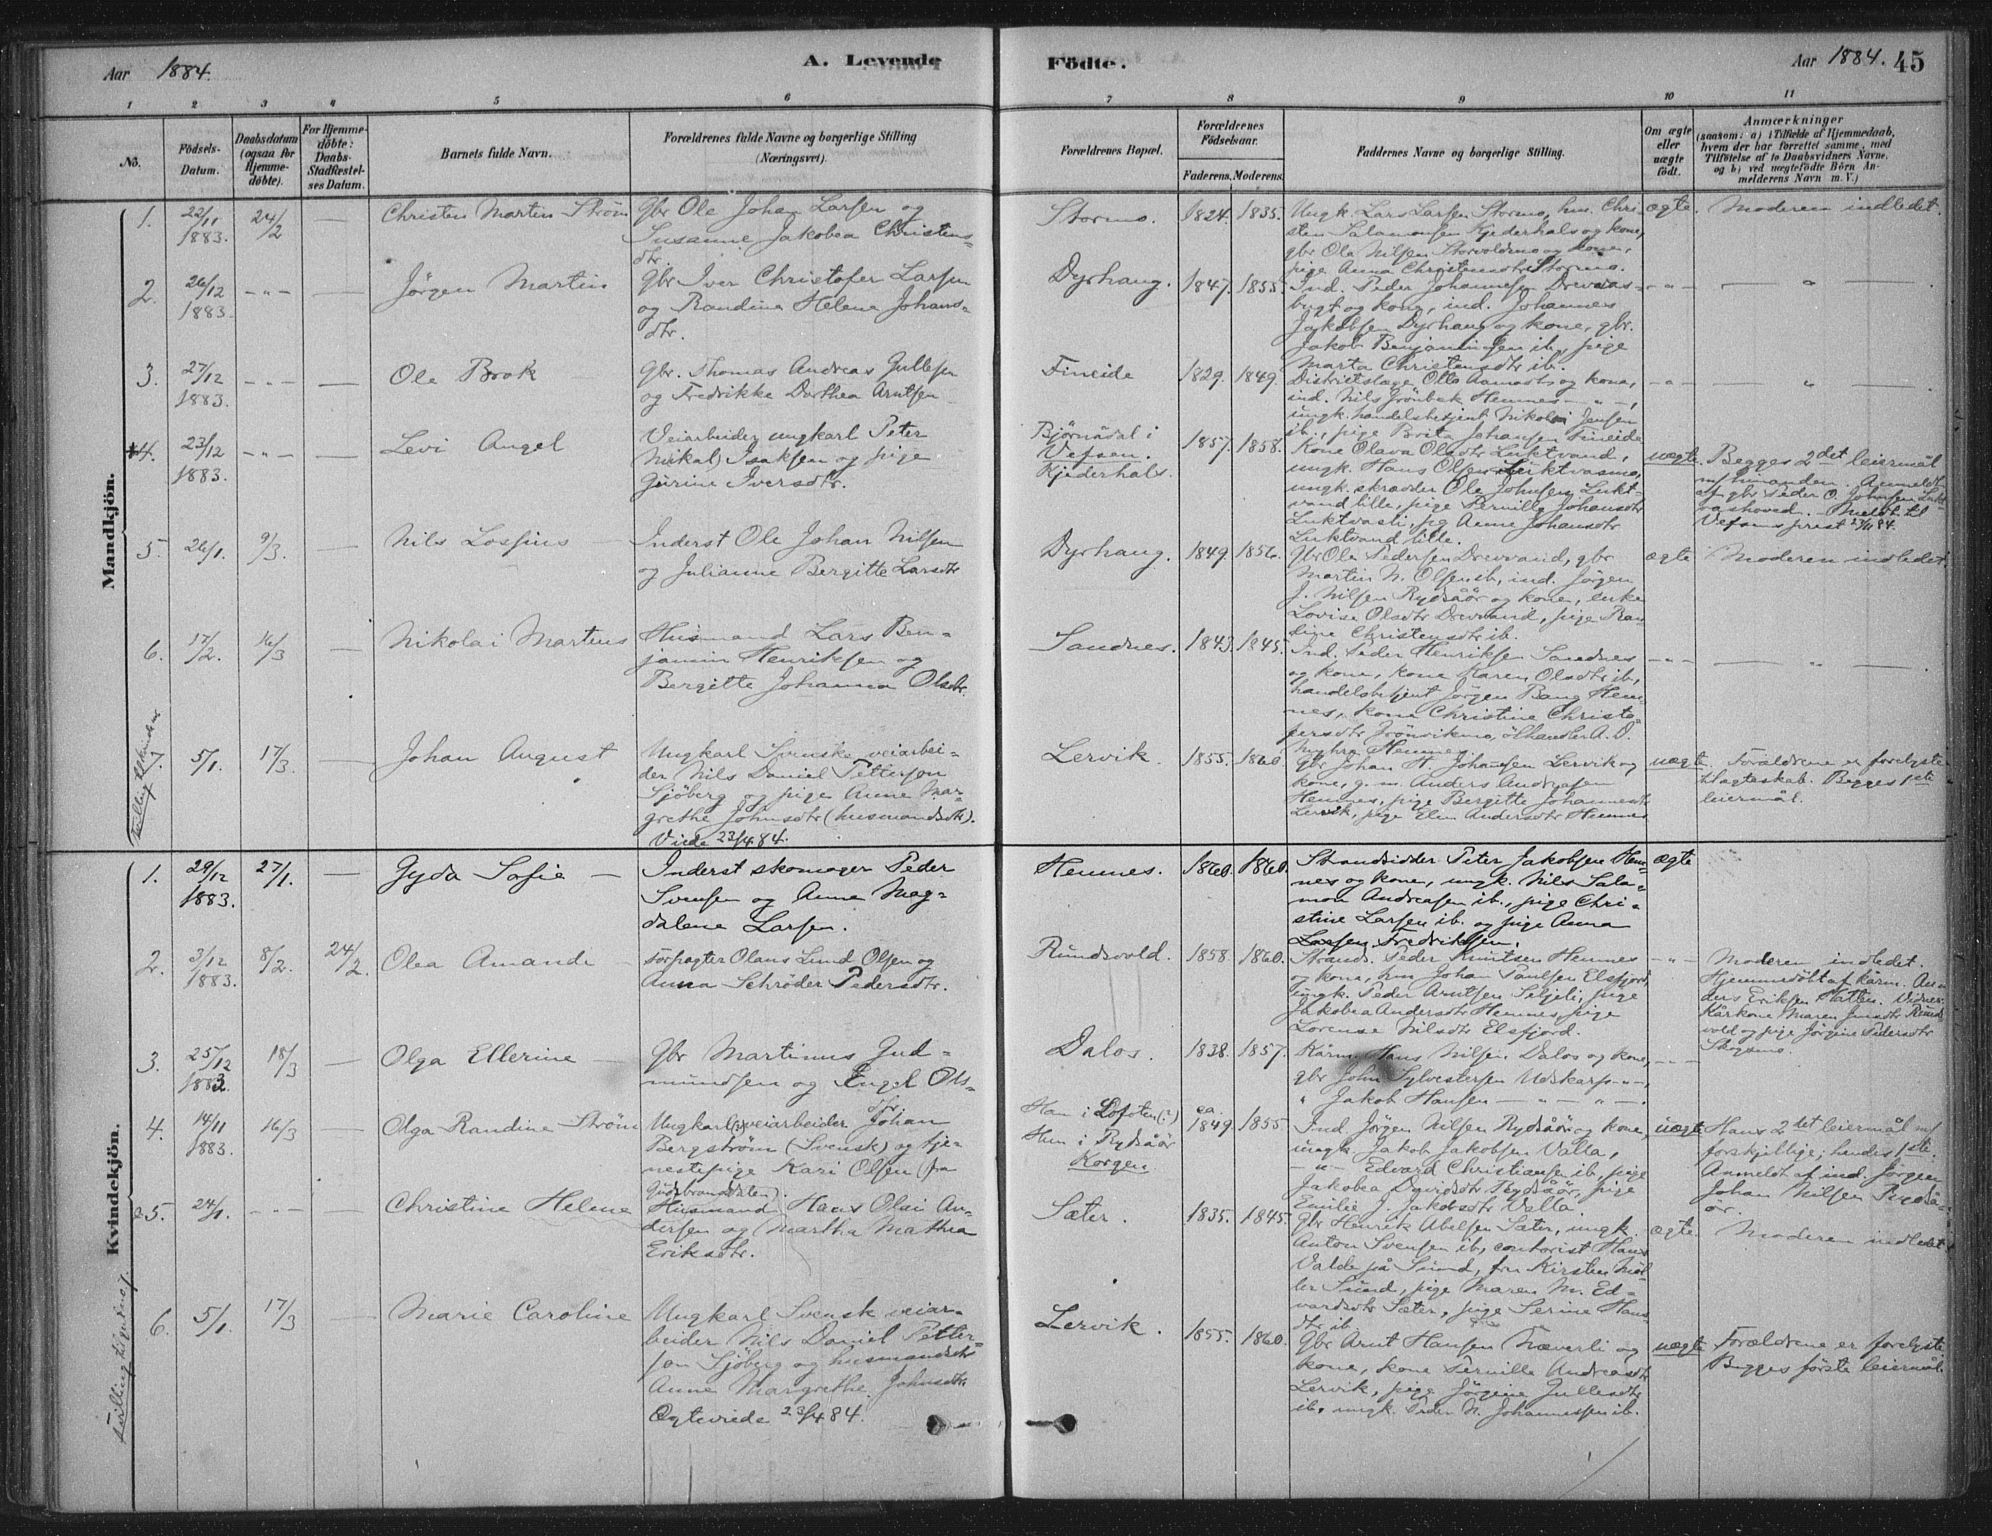 Aar 1884.
A. Levende
Födte.
Aar 1884.
45
1 2 3 4 5 6 7 8 9 10 11
No.
Födsels-
Datum.
Daabsdatum
(ogsaa for
Hjemme-
döbte).
For Hjemme-
döbte:
Daabs-
Stadfæstel-
ses Datum.
Barnets fulde Navn.
Forældrenes fulde Navne og borgerlige Stilling
(Næringsvei).
Forældrenes Bopæl.
Forældrenes
Födselsaar.
Faderens. Moderens.
Faddernes Navne og borgerlige Stilling.
Om ægte
eller
uægte
födt.
Anmærkninger
(saasom: a) i Tilfælde af Hjemmedaab,
hvem der har forrettet samme, med
Tilföielse af to Daabsvidners Navne,
og b) ved uægtefödte Börn An-
melderens Navn m. V.)
Mandkjön.
1. 22/11 1883. 24/2 — Christen Martin Strøm
Gbr Ole Johan Larsen og
Susanne Jakobea Christens-
dtr.
Stormo. 1824. 1835.
Ungk. Lars Larsen Stormo, hm. Chri-
sten Salamonsen Kjederhals og kone,
gbr Ole Nilsen Storvoldmo og kone,
pige Anna Christensdtr Stormo.
ægte. Moderen indledet.
2. 26/12 1883. -"- — Jörgen Martin
Gbr Iver Christofer Larsen
og Randine Helene Johans-
dtr.
Dyrhaug. 1847. 1855.
Ind. Peder Johannesen Drevvas-
bugt og kone, ind. Johannes
Jakobsen Dyrhaug og kone, gbr.
Jakob Benjaminsen ib., pige
Marta Christensdtr ib.
-"- — " —
3. 27/12 1883. -"- — Ole Brok
Gbr. Thomas Andreas Gullesen
og Fredrikke Dorthea Arntsen
Fineide 1829. 1849.
Districtslæge Otto Aamodt og kone,
ind. Nils Grönbek Hemnes -"-,
ungk. handelsbetjent Nikolai Jensen
ib., pige Brita Johansen Fineide
-"- — " —
4. 23/12 1883. -"- — Levi Angel
Veiarbeider ungkarl Peter
Mikal Isaksen og pige
Gurine Iversdtr.
Björnådal i
Vefsen.
Kjederhals.
1857. 1858.
Kone Olava Olsdtr Luktvand,
ungk. Hans Olsen Luktvasmo,
ungk. skrædder Ole Johnsen Lukt-
vand lille, pige Pernille Johansdtr
Luktvasli, pg Anne Johansdtr
Luktvand lille.
uægte. Begges 2det leiermål
m/hinanden. Anmeldt
af gbr Peder O. Johnsen Lukt-
vashoved. Meldt til
Vefsens prest
5. 26/1. 9/3. — Nils Lossius —
Inderst Ole Johan Nilsen
og Julianne Bergitte Larsdtr
Dyrhaug. 1849. 1856.
Gbr Ole Pedersen Drevvand, gbr
Martin N. Olsen ib., ind. Jörgen
J. Nilsen Rydsåör og kone, enke
Lovise Olsdtr Drevvand, pige Ran-
dine Christensdtr ib.
ægte Moderen indledet.
6. 17/2. 16/3 — Nikolai Martens
Husmand Lars Ben-
jamin Henriksen og
Bergitte Johanna Olsdtr.
Sandnes. 1843. 1845.
Ind. Peder Henriksen Sandnes
og kone, kone Karen Olsdtr ib.,
handelsbetjent Jörgen Bang Hem-
nes, kone Christine Christo-
persdtr Grönvikmo, ölhandler A. O.
Myhra Hemnes.
-"- — " —
7. 5/1. 17/3. — Johan August
Ungkarl Svenske veiarbei-
der Nils Daniel Pettersen
Sjöberg og pige Anne Mar-
grethe Johnsdtr (husmandsdtr).
Viede 23/4 84.
Lervik. 1855. 1860
Gbr Johan H. Johansen Lervik og
kone, g. m. Anders Andreasen
Hemnes, pige Bergitte Johannesdtr
Lervik, pige Elen Andersdtr Hemnes
uægte. Forældrene er forelyste
til ægteskab. Begges 1ste
leiermål.
Kvindekjön.
1. 29/12 1883. 27/1. — Gyda Sofie —
Inderst skomager Peder
Svensen og Anne Mag-
dalene Larsen.
Hemnes. 1860. 1860.
Strandsidder Peter Jakobsen Hem-
nes og kone, ungk. Nils Sala-
mon Andreasen ib., pige Chri-
stine Larsen ib. og pige Anna
Larsen Fredriksen.
ægte
2. 3/12 1883. 8/2. 24/2. Olea Amande —
Forpagter Olaus Lund Olsen og
Anna Schrøder Pedersdtr.
Rundvold. 1858. 1860.
Strands. Peder Knutsen Hemnes
og kone, hm Johan Paulsen Elsfjord,
ungk. Peder Arntsen Seljeli, pige
Jakobea Andersdtr Hemnes, pige
Lorense Nilsdtr Elsfjord.
-"- Moderen indledet.
Hjemmedöbt af kårm. An-
ders Eriksen Hatten. Vidner:
Kårkone Maren Jensdtr Rund-
vold og pige Jörgine Pedersdtr
3. 25/12 1883. 18/3 — Olga Ellerine —
Gbr Martinus Gud-
mundsen og Engel Ols-
dtr.
Dalos. 1838. 1857.
Kårm. Hans Nilsen Dalos og kone,
gbr John Sylvestersen Udskarp -"-,
" Jakob Hansen — " — " —.
-"-
4. 14/11 1883. 16/3 — Olga Randine Strøm
Ungkarl(?) veiarbeider Johan
Bergström (Svensk) og tje-
nestepige Kari Olsen (fra
Gudbrandsdalen).
Han i Lofoten (?)
Hun i Rydsåör
Korgen
ca. 1849 1855.
Ind. Jörgen Nilsen Rydsåör og kone,
ungk. Jakob Jakobsen Valla,
-"- Edvard Christiansen ib., pige
Jakobea Davidsdtr Rydsåör, pige
Emilie J. Jakobsdtr Valla.
uægte Hans 2det leiermål m/
forskjellige; hendes 1ste.
Anmeldt af ind. Jörgen
Johan Nilsen Rydså-
ör.
5. 24/1. -"- — Christine Helene
Husmand Hans Olai An-
dersen og Martha Mathea
Eriksdtr.
Sæter. 1835. 1845.
Gbr Henrik Abelsen Sæter, ungk.
Anton Svensen ib., contorist Hans
Valde på Sund, fru Kirsten Möl-
ler Sund, pige Maren M. Ed-
vardsdtr Sæter, pige Serine Hans-
dtr ib.
ægte. Moderen indledet
6. 5/1. 17/3 — Marie Caroline
Ungkarl Svensk veiar-
beider Nils Daniel Petter-
sen Sjöberg og husmandsdtr
Anne Margrethe Johnsdtr.
Ægteviede 23/4 84.
Lervik. 1855. 1860.
Gbr Arnt Hansen Næverli og
kone, kone Pernille Andreasdtr
Lervik, pige Jörgine Gullesdtr
ib., ungk. Peder N. Johannessen ib.
uægte Forældrene er forelyste
Begges förste leiermål.